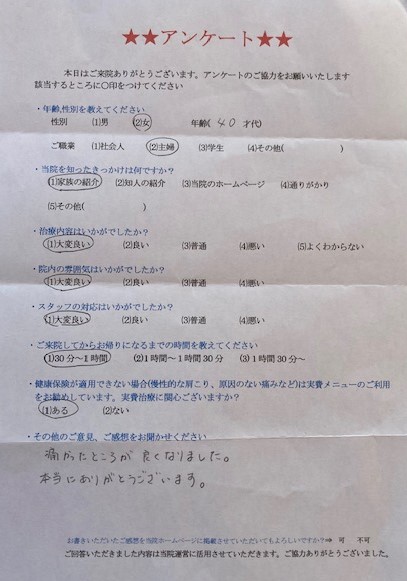 ★★アンケート★★
本日はご来院ありがとうございます。アンケートのご協力をお願いいたします
該当するところに〇印をつけてください
・年齢,性別を教えてください
性別 (1)男 (2)女 年齢( 40 才代)
ご職業 (1)社会人 (2)主婦 (3)学生 (4)その他( )
・当院を知ったきっかけは何ですか？
(1)家族の紹介 (2)知人の紹介 (3)当院のホームページ (4)通りがかり
(5)その他( )
・治療内容はいかがでしたか？
(1)大変良い (2)良い (3)普通 (4)悪い (5)よくわからない
・院内の雰囲気はいかがでしたか？
(1)大変良い (2)良い (3)普通 (4)悪い
・スタッフの対応はいかがでしたか？
(1)大変良い (2)良い (3)普通 (4)悪い
・ご来院してからお帰りになるまでの時間を教えてください
(1)30分～1時間 (2)1時間～1時間30分 (3)1時間30分～
・健康保険が適用できない場合(慢性的な肩こり、原因のない痛みなど)は実費メニューのご利用
をお勧めしています。実費治療に関心ございますか？
(1)ある (2)ない
・その他のご意見、ご感想をお聞かせください
痛かったところが良くなりました。
本当にありがとうございます。
お書きいただいたご感想を当院ホームページに掲載させていただいてもよろしいですか？⇒ 可 不可
ご回答いただきました内容は当院運営に活用させていただきます。ご協力ありがとうございました。